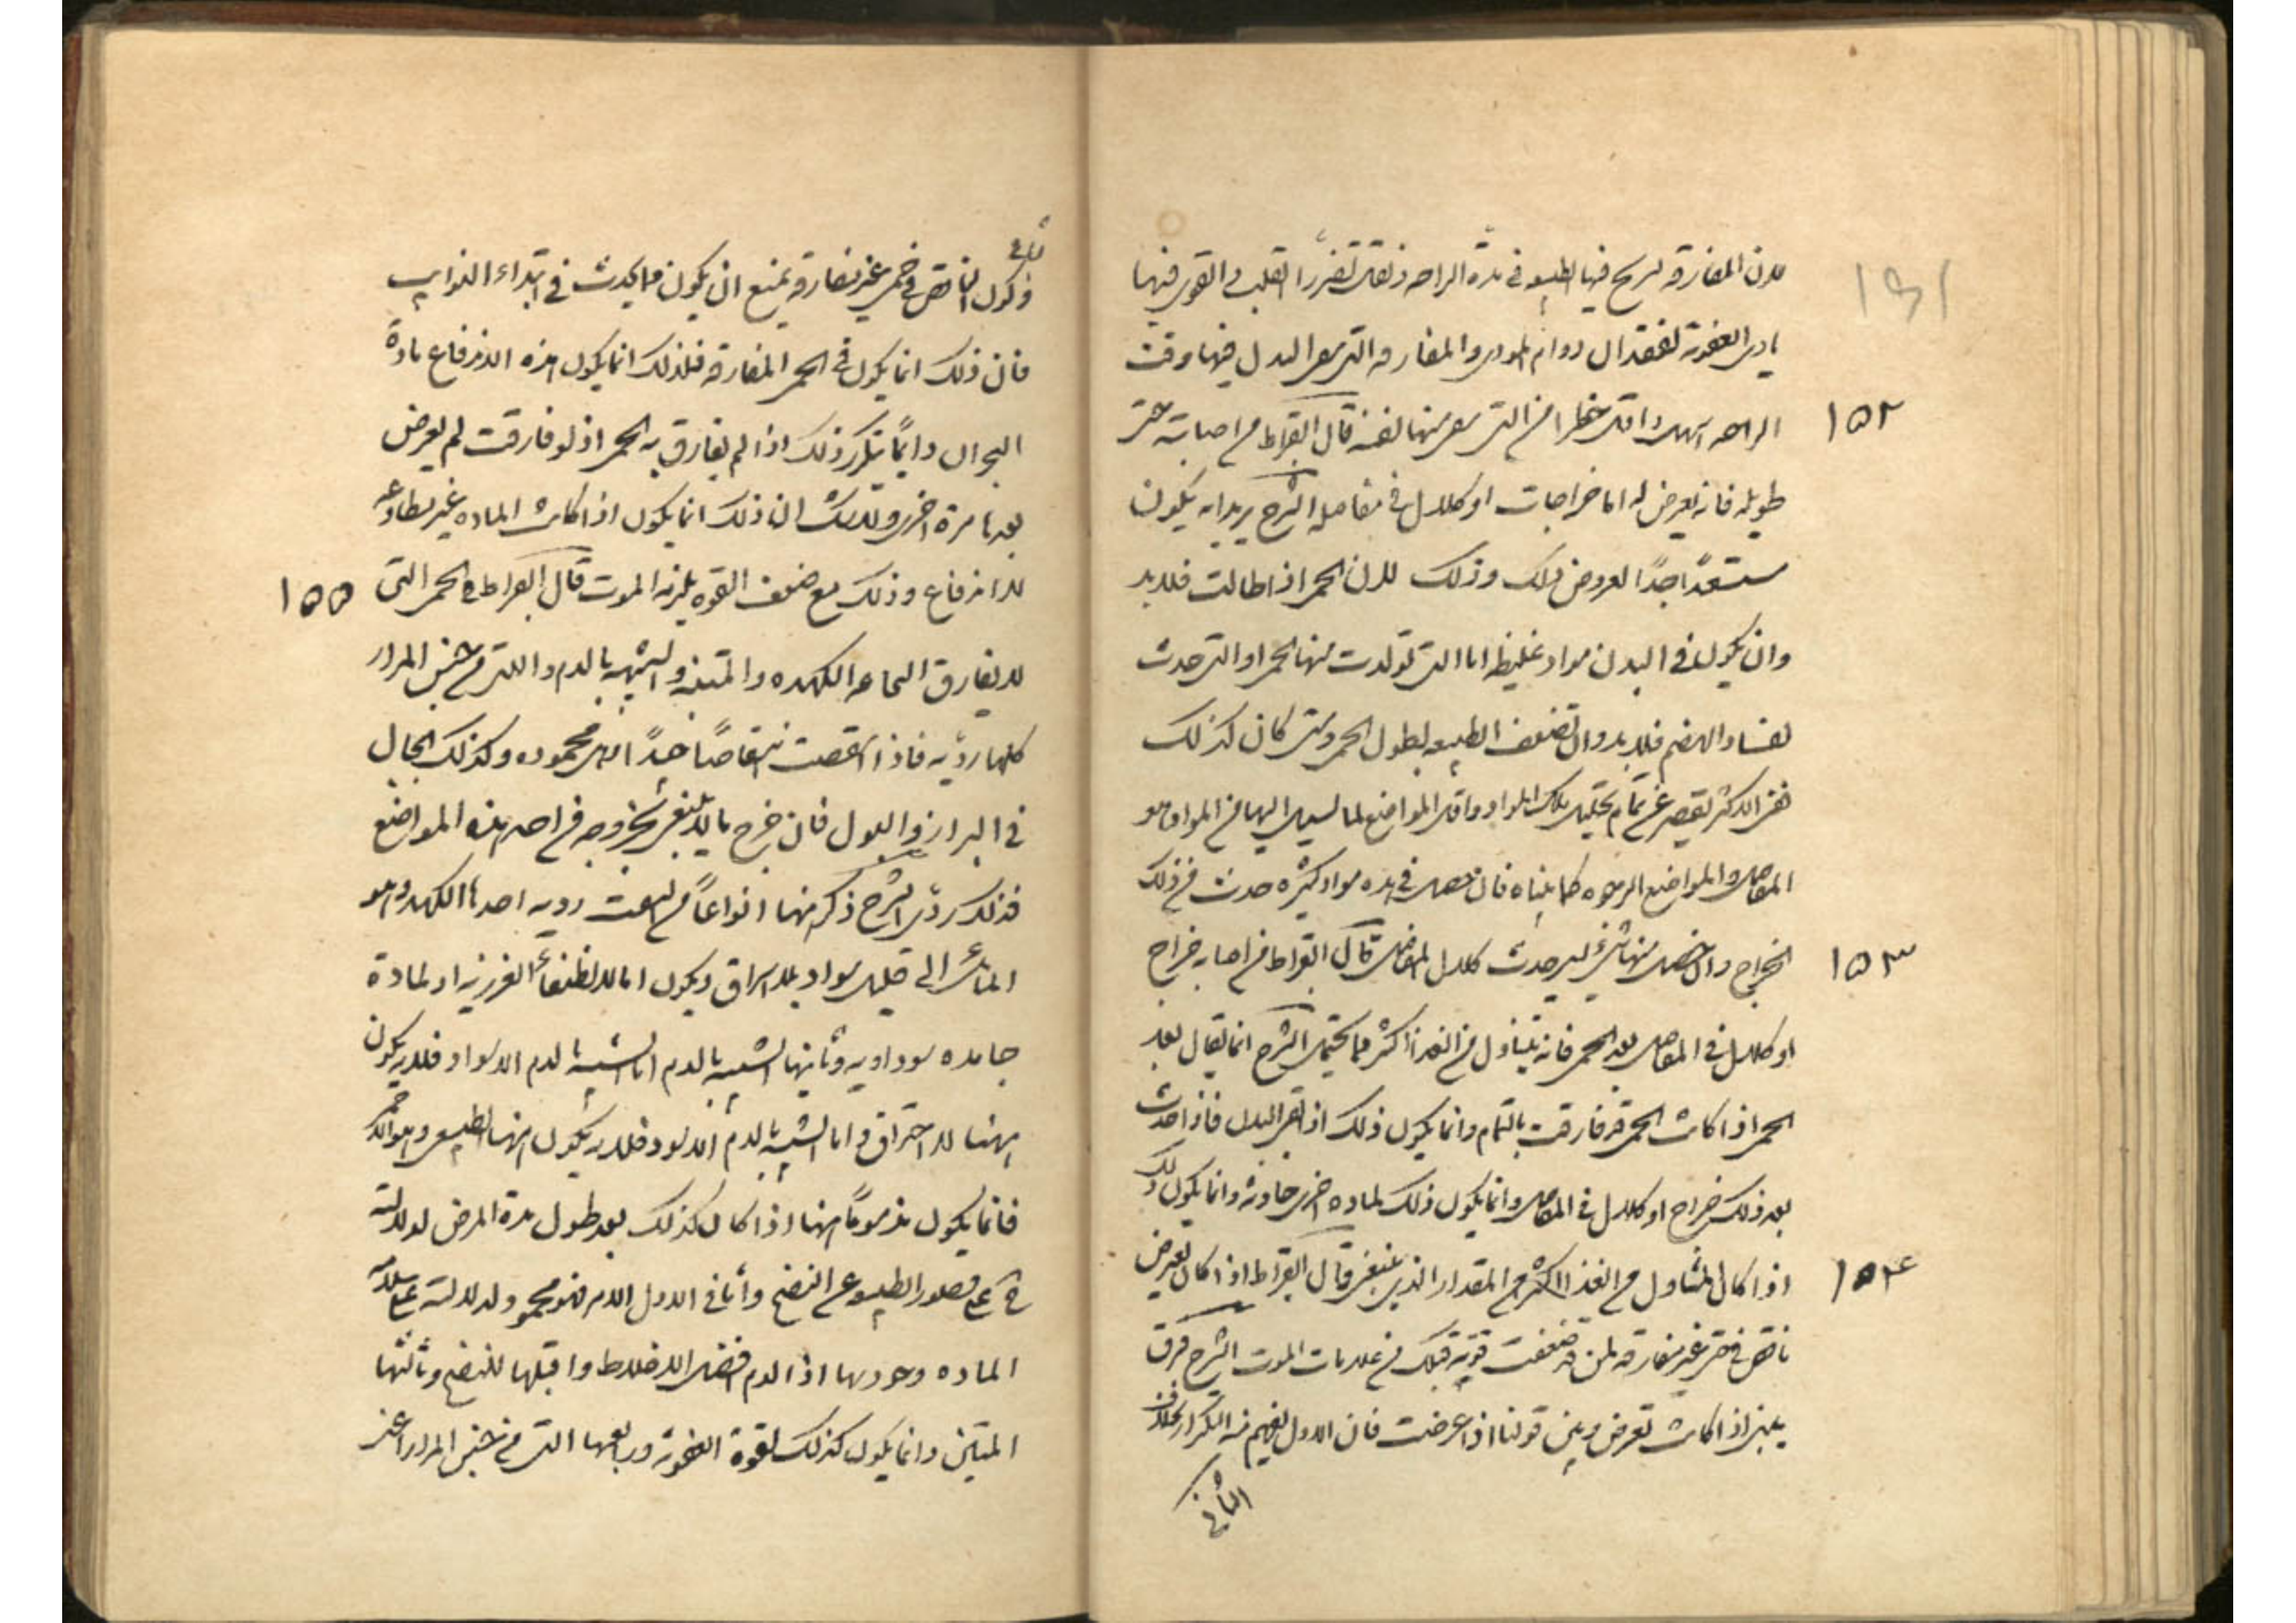 لان المفارقة تريح فيها الطبيعة في مدة الراحة ويقل تضرر القلب والقوى فيها
بأذى العفونة لفقدان دوام المؤذي والمفارقة التي البدل فيها وقت
الراحة اسهل واقل خطرا من التي منها قال ابقراط من اصابته حمى
طويلة فانه يعرض له اما خراجات او كلال في مفاصله الشرح يريد انه يكون
مستعدًا جدًا لعروض ذلك وذلك لان الحمى اذا طالت فلا بد
وان يكون في البدن مواد غليظة اما التي تولدت منها الحمى او التي حدثت
لفساد الهضم فلا بد وان تضعف الطبيعة لطول الحمى ومتى كان كذلك
ففي الاكثر تقصر عن تمام تحليل تلك المواد واقل المواضع لما يسيل اليها من المواد هو
المفاصل والمواضع الرخوة كما بيناه فان حصل في هذه مواد كثيرة حدث من ذلك
الخراج وان حصل منها شيء يسير حدث كلال المفاصل قال ابقراط من اصابه خراج
او كلال في المفاصل بعد الحمى فانه يتناول من الغذا اكثر مما يحتمل الشرح انما يقال بعد
الحمى اذا كانت الحمى قد فارقت بالتمام وانما يكون ذلك اذا نقي البدن فاذا حدث
بعد ذلك خراج او كلال في المفاصل وانما يكون ذلك لمادة اخرى حادثة وانما يكون ذلك
اذا كان المتناول من الغذا اكثر من المقدار الذي ينبغي قال ابقراط اذا كان يعرض
نافض في حمى غير مفارقة لمن قد ضعفت قوته فتلك من علامات الموت الشرح فرق
بين اذا كانت تعرض وبين قولنا اذا عرضت فان الاول يفهم منه التكرار بخلاف
الثاني
١٥٢
١٥٣
١٥٤
الثاني
وكون النافض في حمى غير مفارقة يمنع ان يكون مما يحدث في ابتداء النوايب
فان ذلك انما يكون في الحمى المفارقة فلذلك انما يكون هذه لاندفاع مادة
البحران دايمًا يتكرر ذلك اذا لم يفارق به الحمى اذ لو فارقت لم يعرض
بعدها مرة اخرى ولا شك ان ذلك انما يكون اذا كانت المادة غير مطاوعة
للاندفاع وذلك مع ضعف القوة يلزمه الموت قال ابقراط في الحمى التي
لا يفارق النخاعة الكمدة والمنتنة والشبيهة بالدم والتي من جنس المرار
كلها ردّية فاذا انتقصت انتقاصًا جيدًا فهي محمودة وكذلك الحال
في البراز والبول فان خرج ما لا ينتفع بخروجه من احد هذه المواضع
فذلك ردّي الشرح ذكر منها انواعًا من النفث ردية احدها الكمد وهو
المائل الى قليل سواد بلا اشراق ويكون اما لانطفاء الغريزية او لمادة
جامدة سوداوية وثانيها الشبيه بالدم اما الشبيه بالدم الاسود فلا بد يكون
ههنا للاحتراق واما الشبيه بالدم الاسود فلا بد يكون منها الطبيعي وهو الاحمر
فانما يكون مذمومًا منها اذا كان كذلك بعد طول مدة المرض لدلالته
على قصور الطبيعة عن النضج واما في الاول الامر فهو محمود لدلالته على سلامة
المادة وجودتها اذ الدم افضل الاخلاط واقبلها للنضج وثالثها
المنتن وانما يكون كذلك لقوة العفونة ورابعها التي من جنس المرار اعني
١٥٥